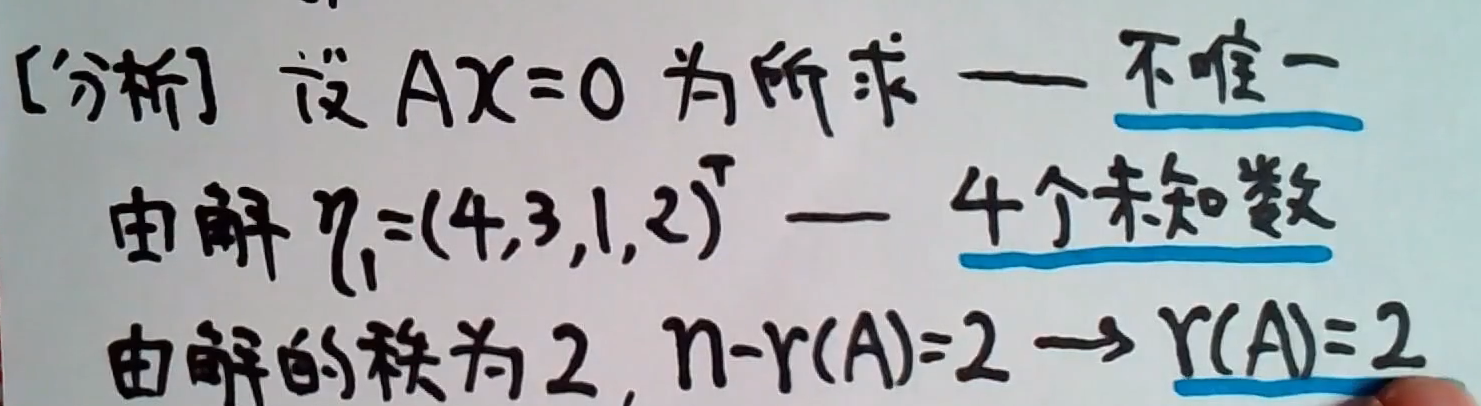 [分析] 设 AX=0 为所求 — 不唯一
由解 η₁=(4,3,1,2)ᵀ — 4个未知数
由解的秩为2, n-r(A)=2 → r(A)=2